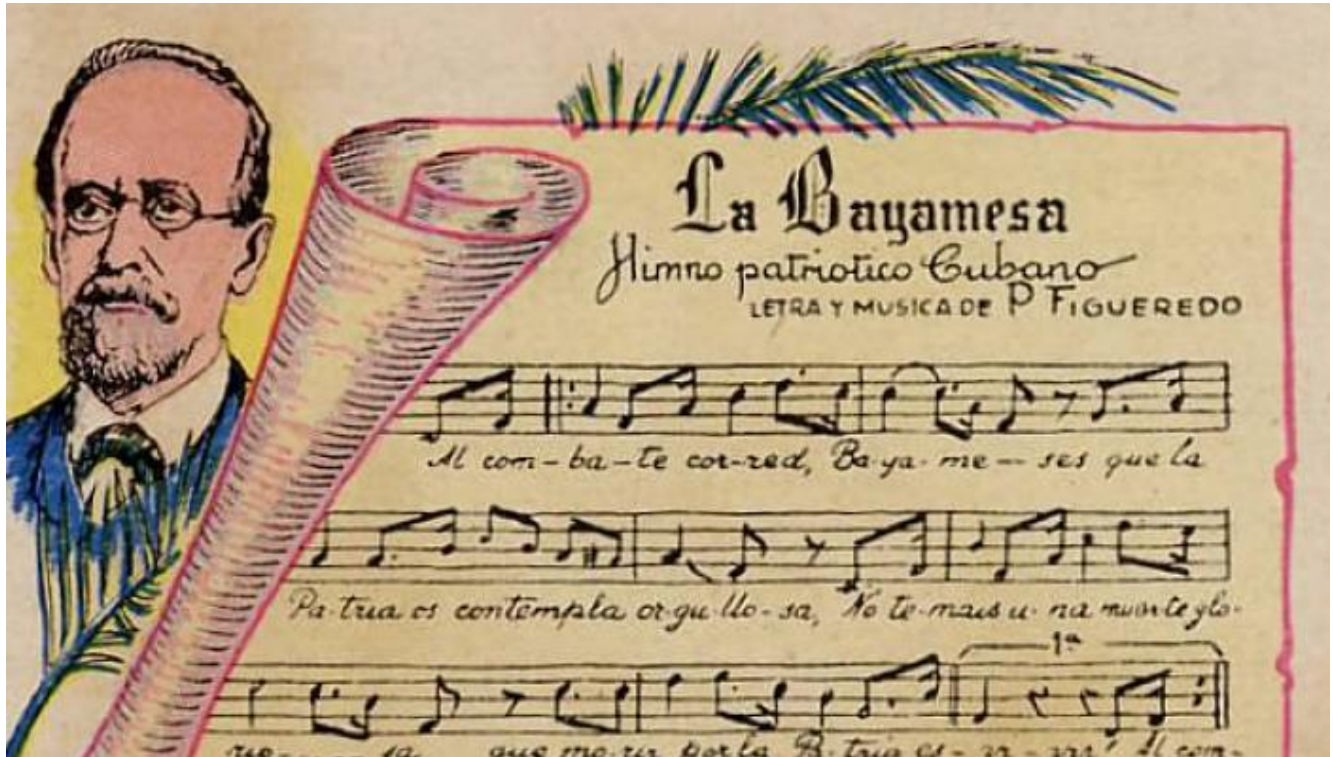 La Bayamesa
Himno patriotico Cubano
LETRA Y MUSICA DE P FIGUEREDO
Al com-ba-te cor-red, Ba-ya-me-ses que la
Pa-tria os contempla or-gu-llo-sa, No te-mais u-na muerte glo-
1ª
rio-sa que mo-rir por la Pa-tria es- vi-vir! Al com-